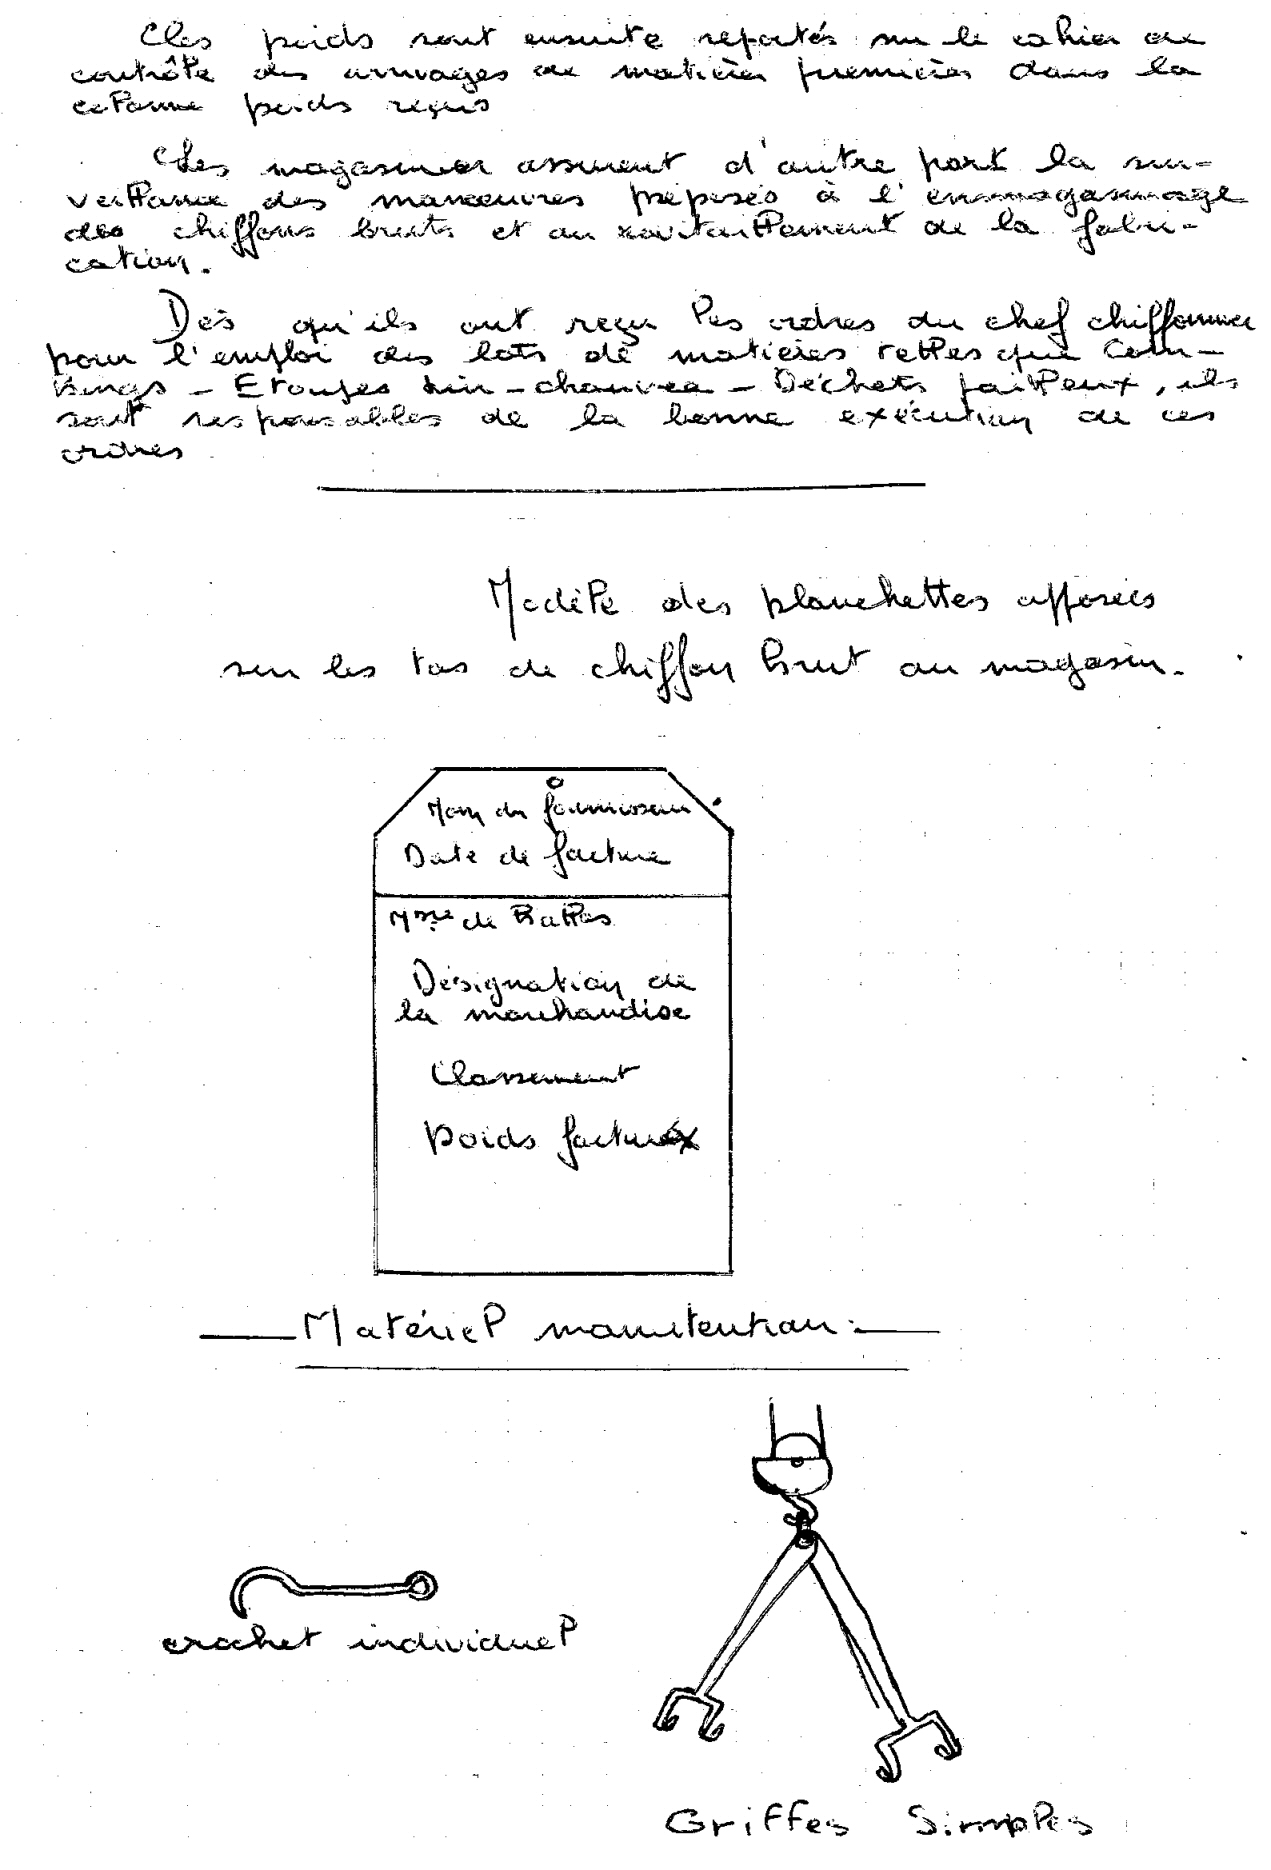 Ces poids sont ensuite reportés sur le cahier de
contrôle des arrivages de matières premières dans la
colonne poids reçus
Les magasinier assurent d'autre part la sur-
veillance des manœuvres préposés à l'enmagasinage
des chiffons bruts et au ravitaillement de la fabri-
cation.
Dès qu'ils ont reçu les ordres du chef chiffonnier
pour l'emploi des lots de matières telles que Com-
bings - Etoupes lin - chanvre - Déchets pailleux, ils
sont responsables de la bonne exécution de ces
ordres
Modèle des planchettes apposées
sur les tas de chiffon brut au magasin.
Nom du fournisseur
Date de facture
de Balles
Désignation de
la marchandise
Classement
Poids facture
Matériel manutention :
crochet individuel
Griffes Simples